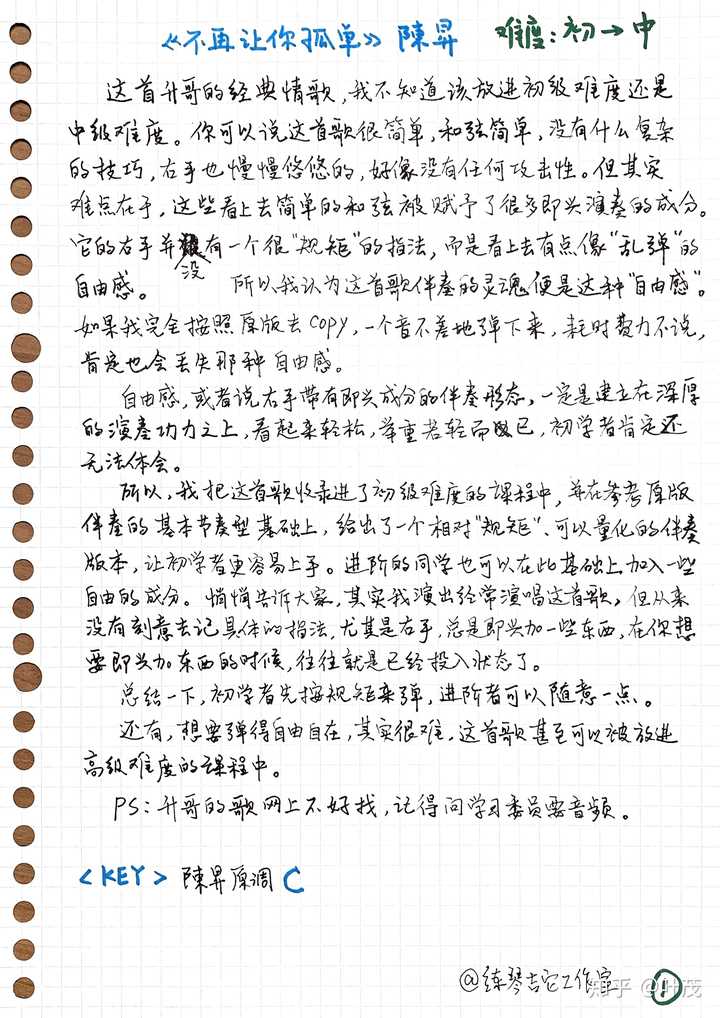 《不再让你孤单》陳昇 难度:初→中
这首升哥的经典情歌,我不知道该放进初级难度还是
中级难度。你可以说这首歌很简单,和弦简单,没有什么复杂
的技巧,右手也慢慢悠悠的,好像没有任何攻击性。但其实
难点在于,这些看上去简单的和弦被赋予了很多即兴演奏的成分。
它的右手并没有一个很"规矩"的指法,而是看上去有点像"乱弹"的
自由感。 所以我认为这首歌伴奏的灵魂便是这种"自由感"。
如果我完全按照原版去copy,一个音不差地弹下来,耗时费力不说,
肯定也会丢失那种自由感。
自由感,或者说右手带有即兴成分的伴奏形态,一定是建立在深厚
的演奏功力之上,看起来轻松,举重若轻而已,初学者肯定还
无法体会。
所以,我把这首歌收录进了初级难度的课程中,并在参考原版
伴奏的基本节奏型基础上,给出了一个相对"规矩"、可以量化的伴奏
版本,让初学者更容易上手。进阶的同学也可以在此基础上加入一些
自由的成分。悄悄告诉大家,其实我演出经常演唱这首歌,但从来
没有刻意去记具体的指法,尤其是右手,总是即兴加一些东西,在你想
要即兴加东西的时候,往往就是已经投入状态了。
总结一下,初学者先按规矩来弹,进阶者可以随意一点。
还有,想要弹得自由自在,其实很难,这首歌甚至可以被放进
高级难度的课程中。
PS:升哥的歌网上不好找,记得问学习委员要音频。
<KEY> 陳昇原调 C
@练琴吉它工作室
知乎 @叶茂
1